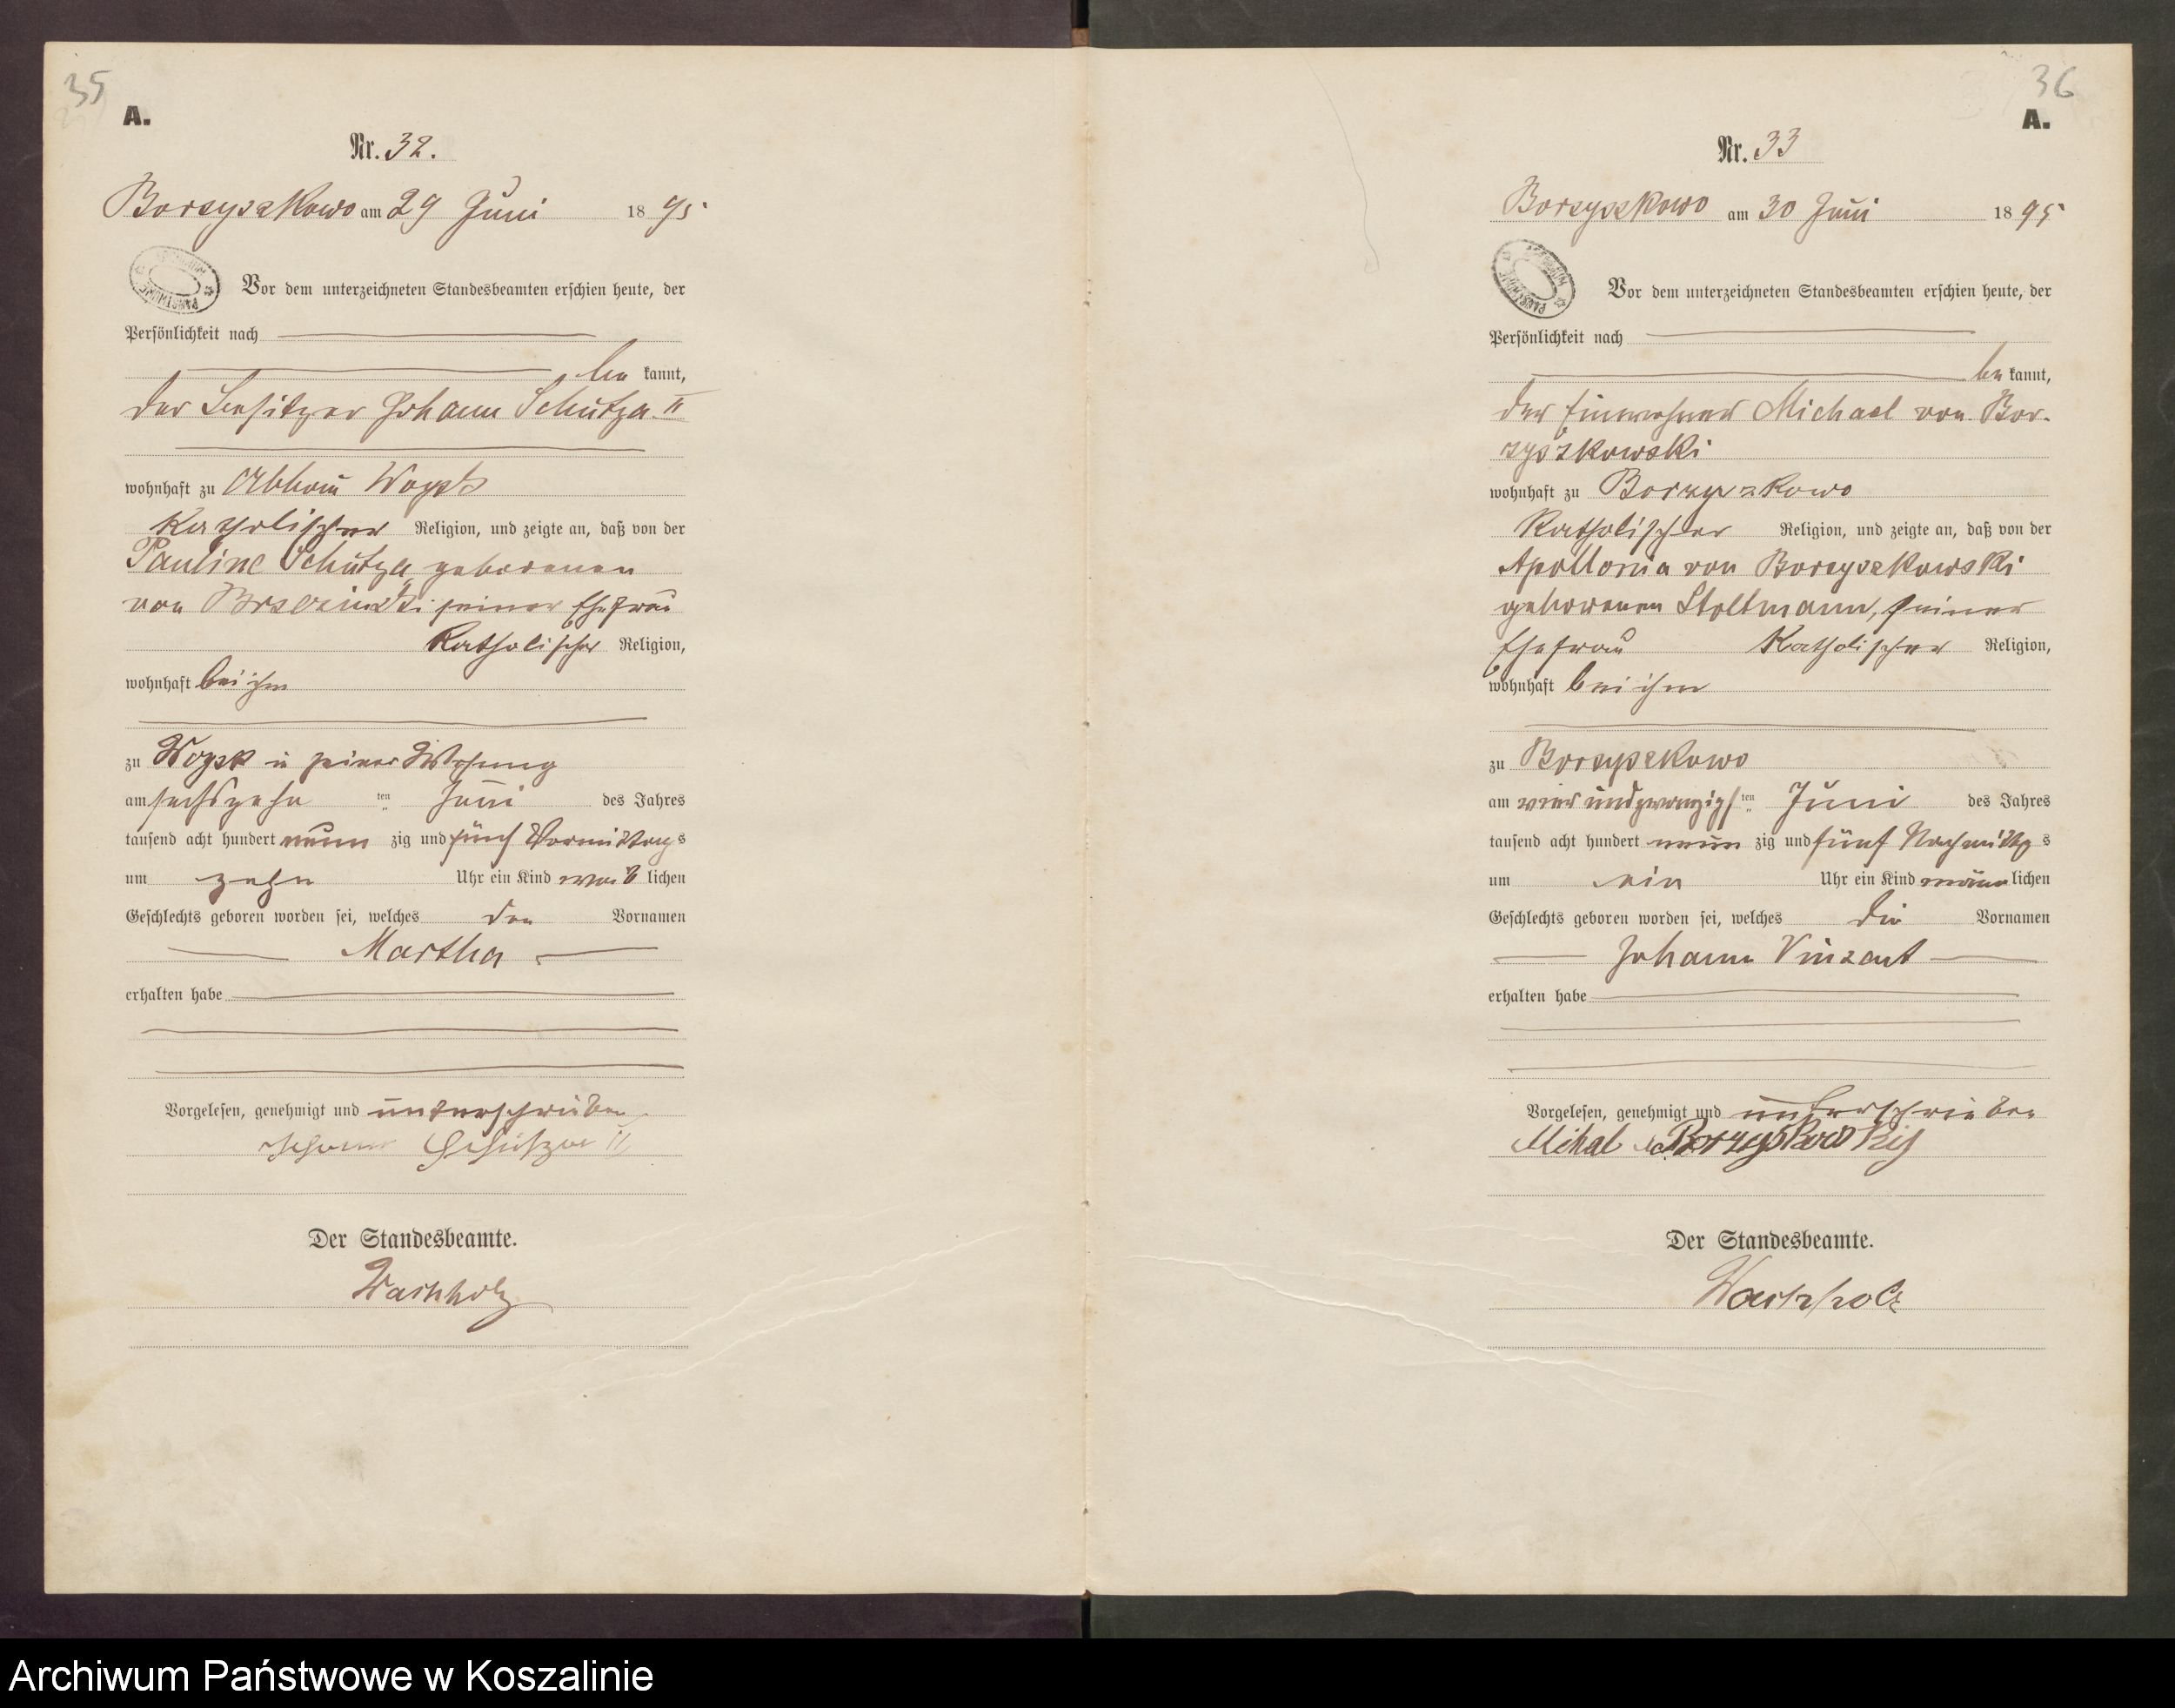 35
A.
Nr. 32.
Borzyszkowo am 29 Juni 1895
Vor dem unterzeichneten Standesbeamten erschien heute, der
Persönlichkeit nach
be kannt,
der Besitzer Johann Schutza II
wohnhaft zu Abbau Woysk
Katholischer Religion, und zeigte an, daß von der
Pauline Schutza geborenen
von seiner Ehefrau
Katholischer Religion,
wohnhaft bei ihm
zu Woysk in seiner Wohnung
am sechszehn ten Juni des Jahres
tausend acht hundert neun zig und fünf Vormittags
um zehn Uhr ein Kind weib lichen
Geschlechts geboren worden sei, welches den Vornamen
Martha
erhalten habe
Vorgelesen, genehmigt und unterschrieben
II
Der Standesbeamte.
Warnholz
36
A.
Nr. 33
Borzyszkowo am 30 Juni 1895
Vor dem unterzeichneten Standesbeamten erschien heute, der
Persönlichkeit nach
be kannt,
der Einwohner Michael von Bor-
zyszkowski
wohnhaft zu Borzyszkowo
Katholischer Religion, und zeigte an, daß von der
Apollonia von Borzyszkowski
geborenen Stoltmann, seiner
Ehefrau Katholischer Religion,
wohnhaft bei ihm
zu Borzyszkowo
am vier und zwanzigs ten Juni des Jahres
tausend acht hundert neun zig und fünf Nachmittgs
um ein Uhr ein Kind männ lichen
Geschlechts geboren worden sei, welches die Vornamen
Johann Vinzent
erhalten habe
Vorgelesen, genehmigt und unterschrieben
Mihal
Der Standesbeamte.
Warnholz
Archiwum Państwowe w Koszalinie